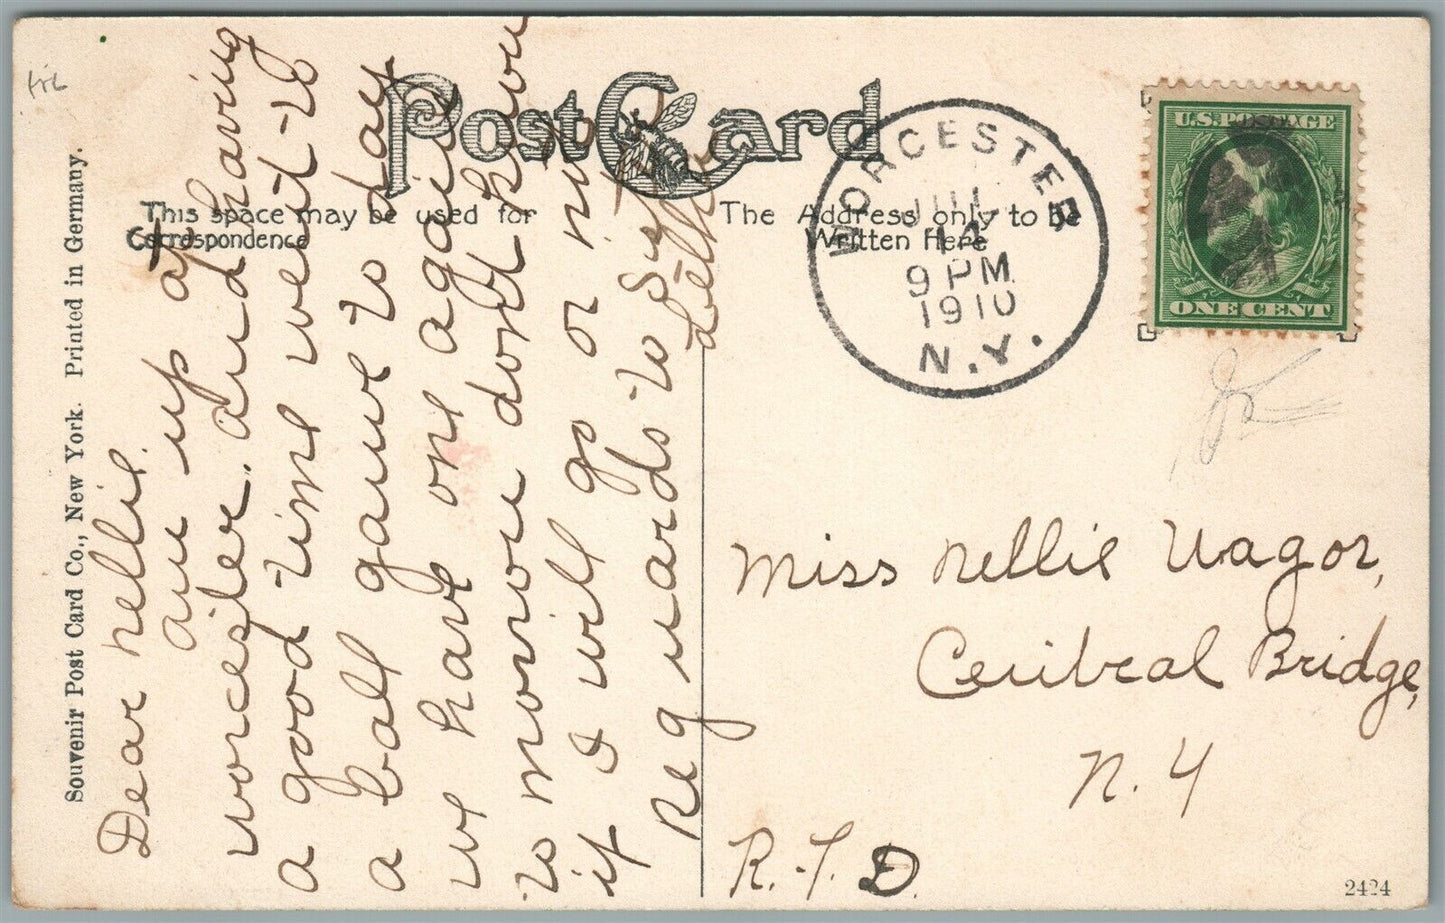 Post Card
This space may be used for
Correspondence
The Address only to be
Written Here
WORCESTER
JUL
14
9 PM
1910
N.Y.
U.S. POSTAGE
ONE CENT
Souvenir Post Card Co., New York. Printed in Germany.
Dear Nellie.
am up at
worcester. and having
a good time went to
a ball game to day
we have one again
to morrow dont know
if I will go or not
Regards to
Miss Nellie Wagor,
Central Bridge,
N. Y
R. F. D.
2424